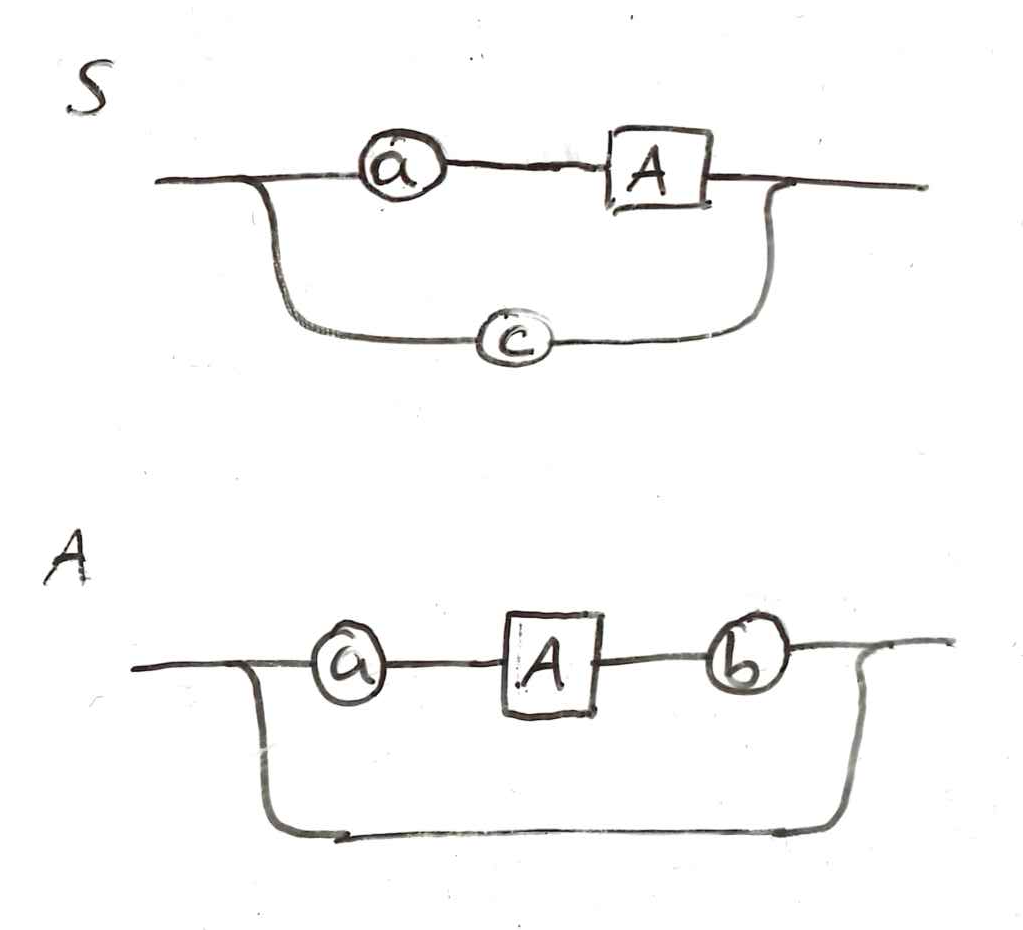 S
a A
c
A
a A b